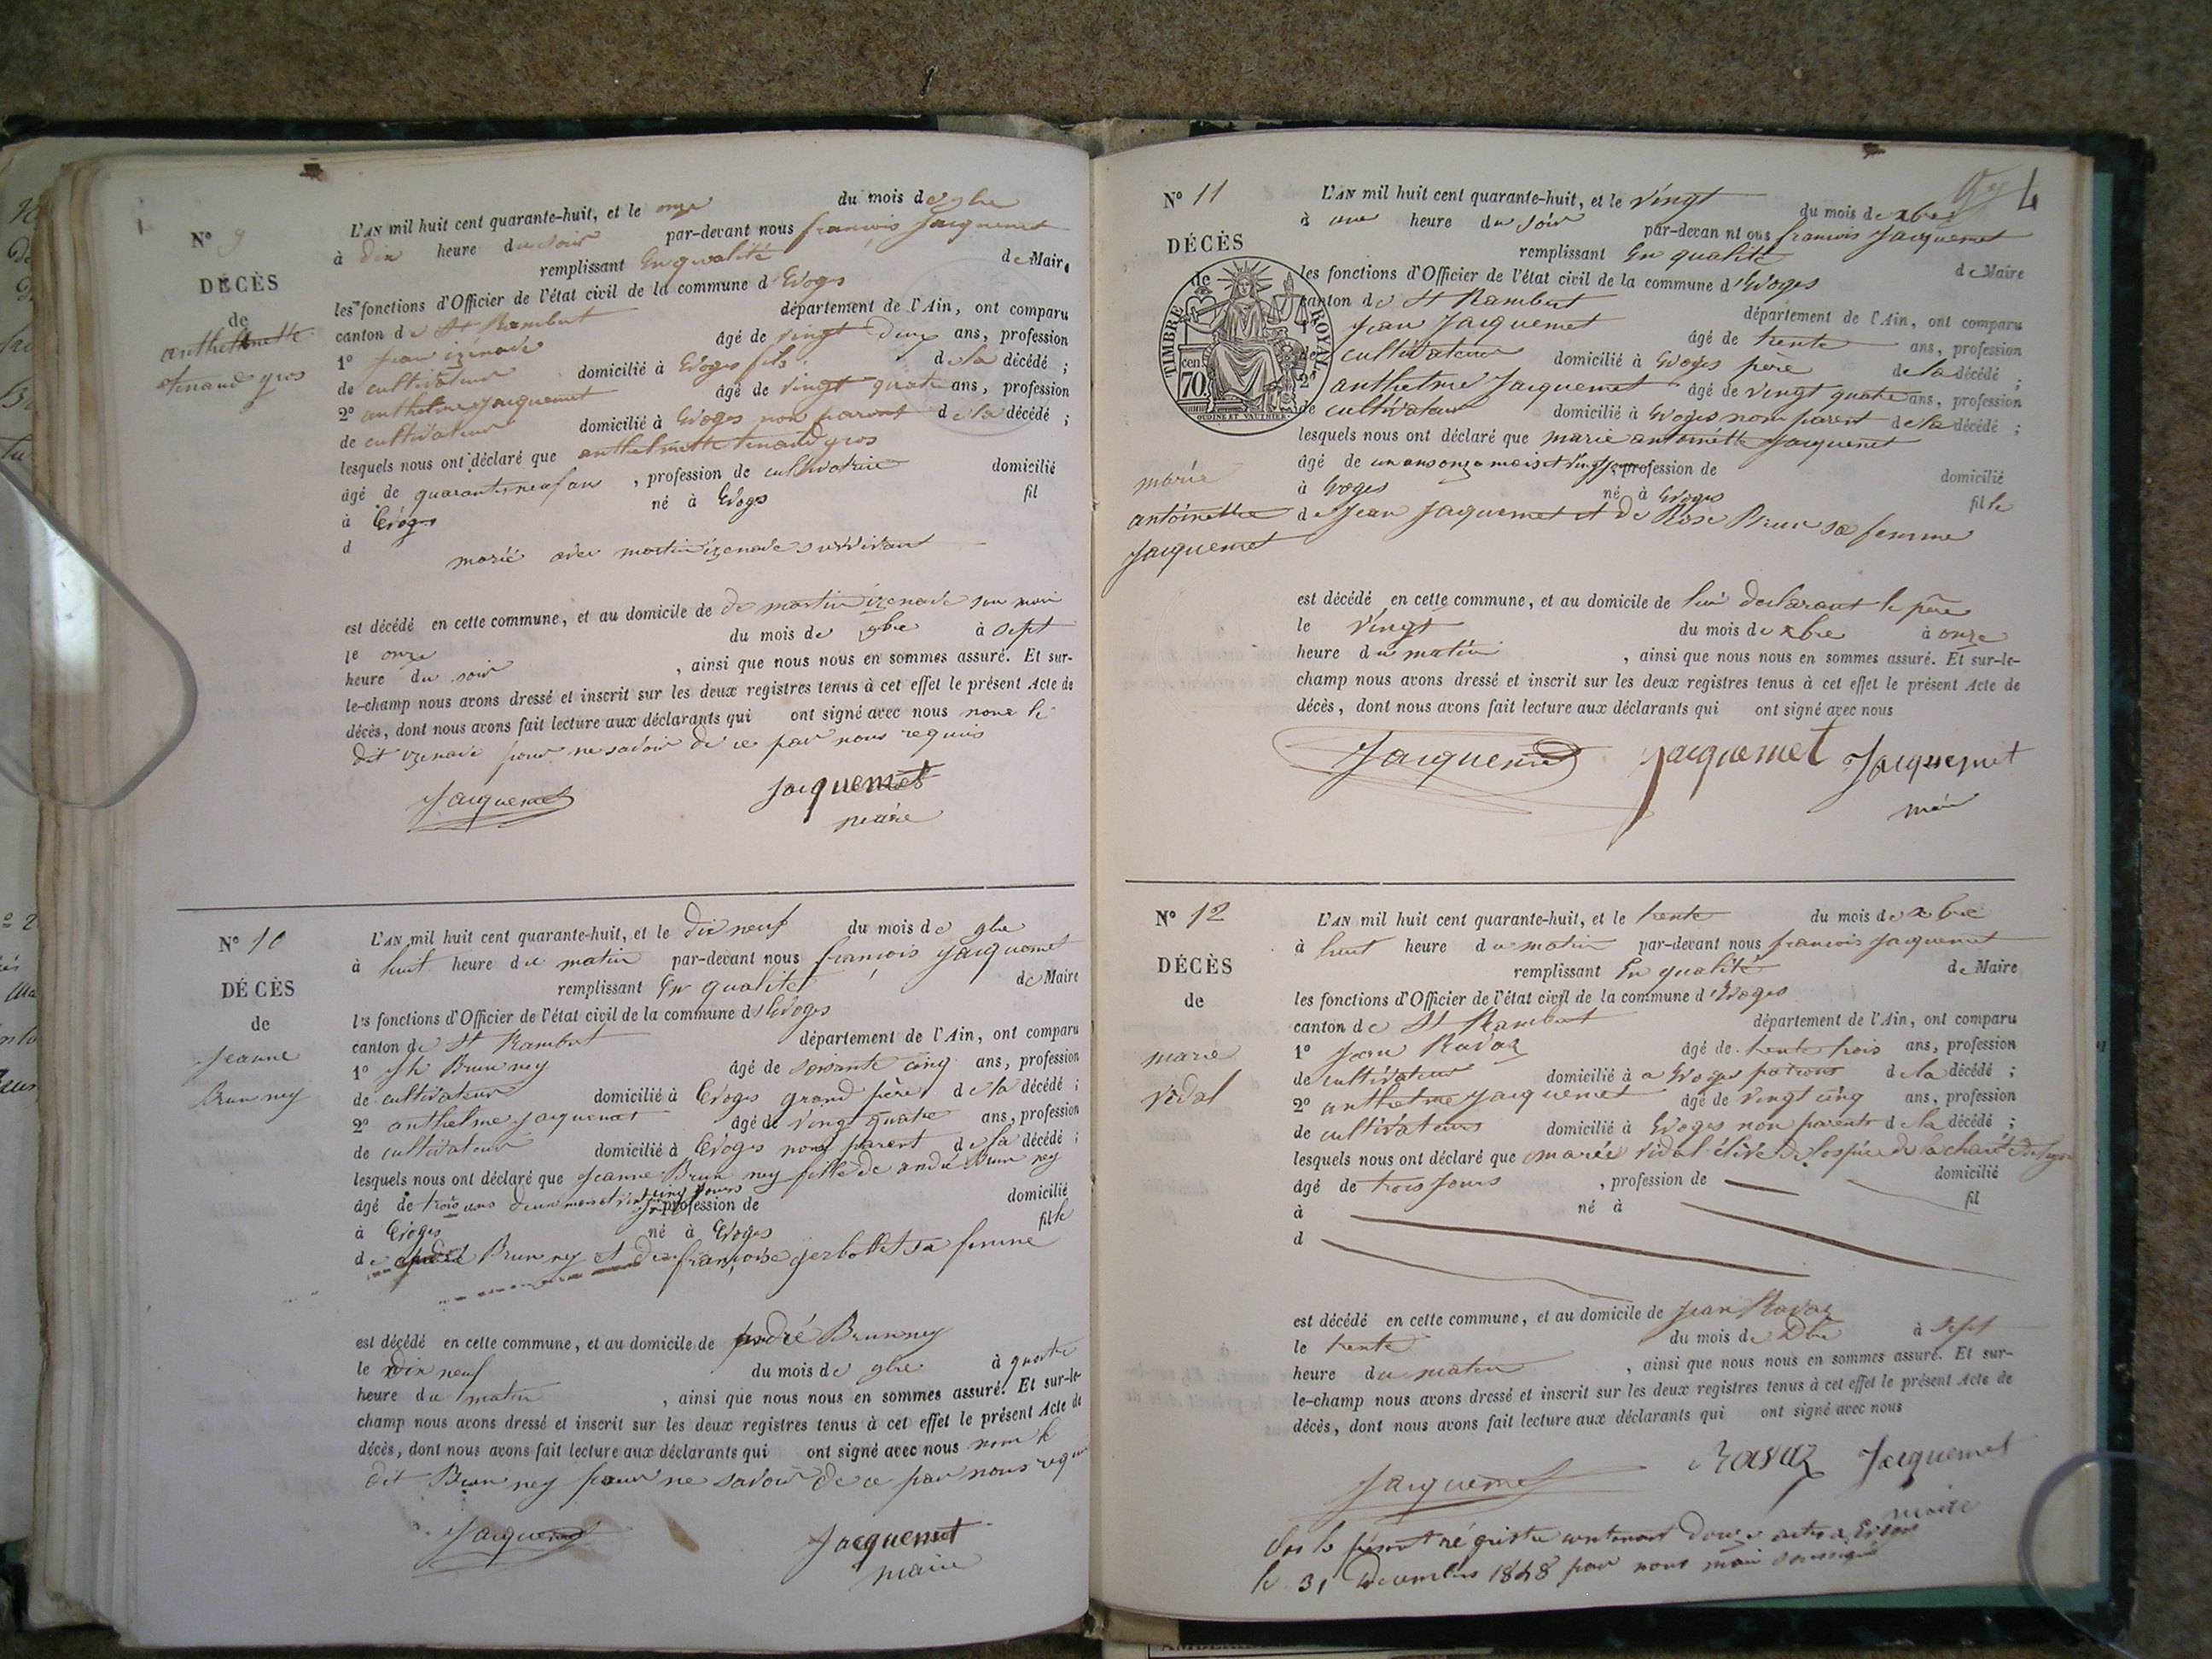 N° 9
DÉCÈS
de
anthelmette
tenand gros
L'AN mil huit cent quarante-huit, et le onze du mois de 9bre
à dix heure du soir par-devant nous françois Jacquemet
remplissant En qualité de Maire
les fonctions d'Officier de l'état civil de la commune d'Evoges
canton de St Rambert département de l'Ain, ont comparu
1° jean izénave âgé de vingt deux ans, profession
de cultivateur domicilié à Evoges fils de la décédé ;
2° anthelme jacquemet âgé de vingt quatre ans, profession
de cultivateur domicilié à Evoges non parent de la décédé ;
lesquels nous ont déclaré que anthelmette tenand gros
âgé de quarante neuf ans , profession de cultivatrice domicilié
à Evoges né à Evoges fil
d
marié avec martin izenave survivant
est décédé en cette commune, et au domicile de de martin izenave son mari
le onze du mois de 9bre à sept
heure du soir , ainsi que nous nous en sommes assuré. Et sur-
le-champ nous avons dressé et inscrit sur les deux registres tenus à cet effet le présent Acte de
décès, dont nous avons fait lecture aux déclarants qui ont signé avec nous non le
dit izenave pour ne savoir de ce par nous requis
Jacquemet Jacquemet
maire
N° 10
DÉCÈS
de
Jeanne
brun ney
L'AN mil huit cent quarante-huit, et le Dix neuf du mois de 9bre
à huit heure du matin par-devant nous françois jacquemet
remplissant En qualité de Maire
les fonctions d'Officier de l'état civil de la commune d'Evoges
canton de St Rambert département de l'Ain, ont comparu
1° jh Brun ney âgé de soixante cinq ans, profession
de cultivateur domicilié à Evoges grand père de la décédé ;
2° anthelme jacquemet âgé de vingt quatre ans, profession
de cultivateur domicilié à Evoges non parent de la décédé ;
lesquels nous ont déclaré que Jeanne Brun ney fille de andré Brun ney
âgé de trois ans d'un mois et vingt cinq jours , profession de domicilié
à Evoges né à Evoges fille
de andré Brun ney et de françoise gerbollet sa femme
est décédé en cette commune, et au domicile de andré Brun ney
le Dix neuf du mois de 9bre à quatre
heure du matin , ainsi que nous nous en sommes assuré. Et sur-le-
champ nous avons dressé et inscrit sur les deux registres tenus à cet effet le présent Acte de
décès, dont nous avons fait lecture aux déclarants qui ont signé avec nous non le
dit Brun ney pour ne savoir de ce par nous requis
Jacquemet Jacquemet
maire
4
N° 11
DÉCÈS
de
TIMBRE ROYAL
70 cen
OUDINE ET VAUTHIER
marie
antoinette
Jacquemet
L'AN mil huit cent quarante-huit, et le vingt du mois de xbre
à une heure du soir par-devan nt ous francois Jacquemet
remplissant En qualité de Maire
les fonctions d'Officier de l'état civil de la commune d'Evoges
canton de St Rambert département de l'Ain, ont comparu
1° Jean Jacquemet âgé de trente ans, profession
de cultivateur domicilié à Evoges père de la décédé ;
2° anthelme Jacquemet âgé de vingt quatre ans, profession
de cultivateur domicilié à Evoges non parent de la décédé ;
lesquels nous ont déclaré que marie antoinette Jacquemet
âgé de un ans onze mois et vingt jours , profession de domicilié
à Evoges né à Evoges fille
de Jean Jacquemet et de Rose Brun sa femme
est décédé en cette commune, et au domicile de lui déclarant le père
le vingt du mois de xbre à onze
heure du matin , ainsi que nous nous en sommes assuré. Et sur-le-
champ nous avons dressé et inscrit sur les deux registres tenus à cet effet le présent Acte de
décès, dont nous avons fait lecture aux déclarants qui ont signé avec nous
Jacquemet Jacquemet Jacquemet
maire
N° 12
DÉCÈS
de
marie
vidal
L'AN mil huit cent quarante-huit, et le trente du mois de xbre
à huit heure du matin par-devant nous francois jacquemet
remplissant En qualité de Maire
les fonctions d'Officier de l'état civil de la commune d'Evoges
canton de St Rambert département de l'Ain, ont comparu
1° Jean Ravaz âgé de trente trois ans, profession
de cultivateur domicilié à a Evoges patrons de la décédé ;
2° anthelme jacquemet âgé de vingt cinq ans, profession
de cultivateurs domicilié à Evoges non parents de la décédé ;
lesquels nous ont déclaré que marie vidal élève de l'ospice de la charité de lyon
âgé de trois jours , profession de domicilié
à né à fil
d
est décédé en cette commune, et au domicile de Jean Ravaz
le trente du mois de Dbre à sept
heure du matin , ainsi que nous nous en sommes assuré. Et sur-
le-champ nous avons dressé et inscrit sur les deux registres tenus à cet effet le présent Acte de
décès, dont nous avons fait lecture aux déclarants qui ont signé avec nous
Jacquemet Ravaz Jacquemet
maire
Clos le présent régistre contenant douze actes a Evoges
le 31 Decembre 1848 par nous maire soussigné